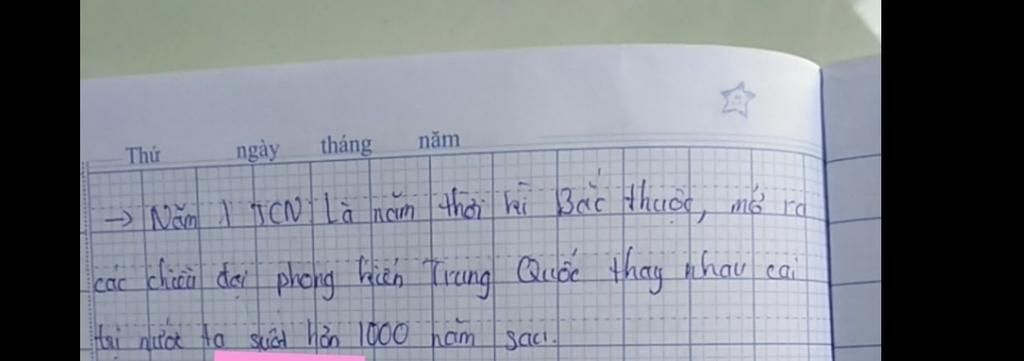 Thứ ngày tháng năm
→ Năm 1 TCN Là năm thời kì Bắc thuộc, mở ra
các chiều đại phong kiến Trung Quốc thay nhau cai
tại nước ta suốt hơn 1000 năm sau.